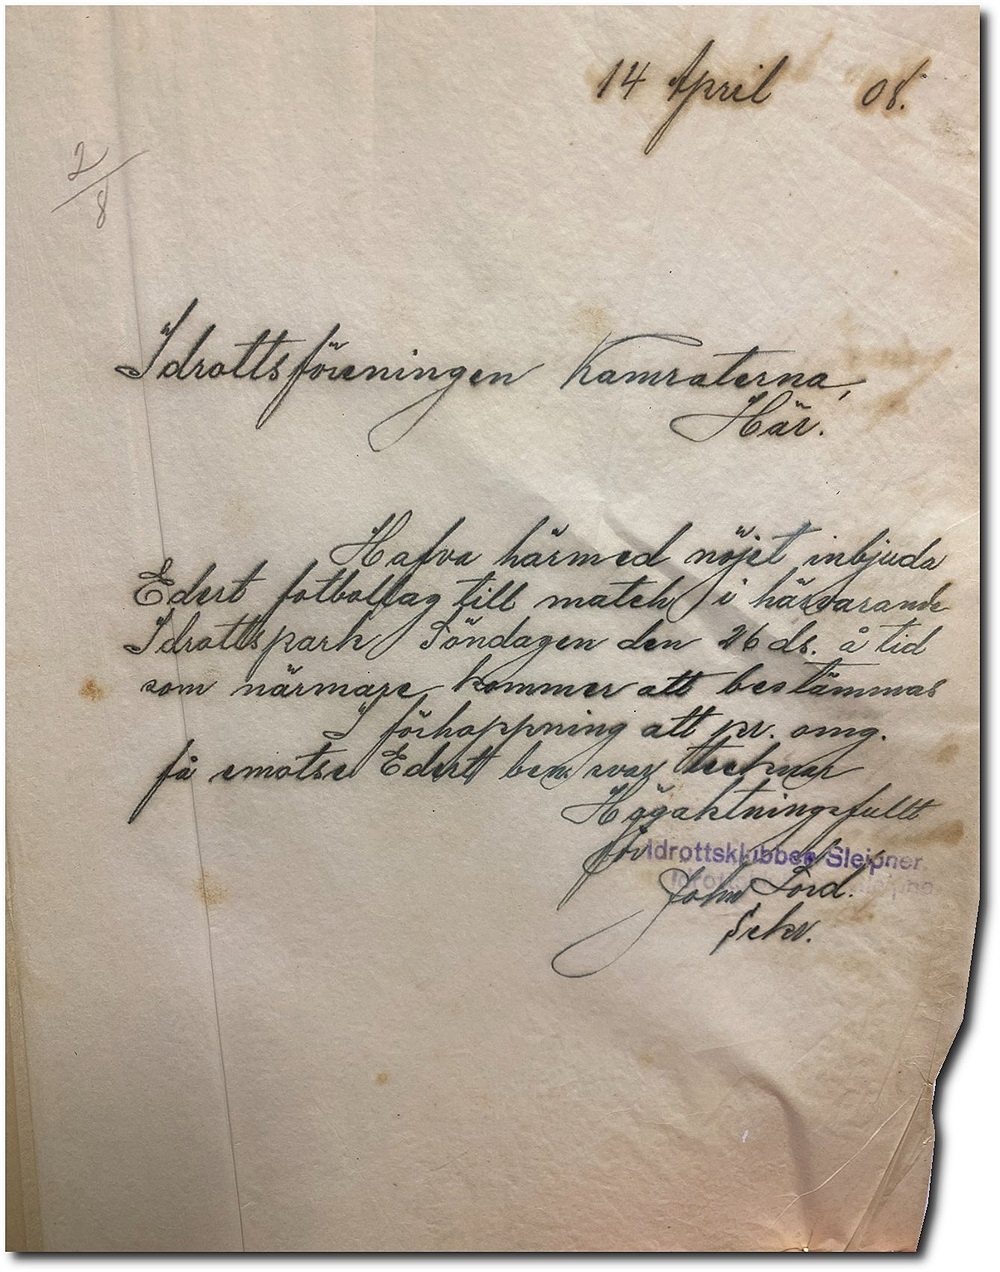 14 April 08.
2/8
Idrottsföreningen Kamraterna,
Här.
Hafva härmed nöjet inbjuda
Edert fotbollag till match i härvarande
Idrottspark Söndagen den 26 ds. å tid
som närmare kommer att bestämmas
I förhoppning att pr. omg.
få emotse Edert ben. svar tecknar
Högaktningsfullt
för Idrottsklubben Sleipner.
John Lord.
Sekr.